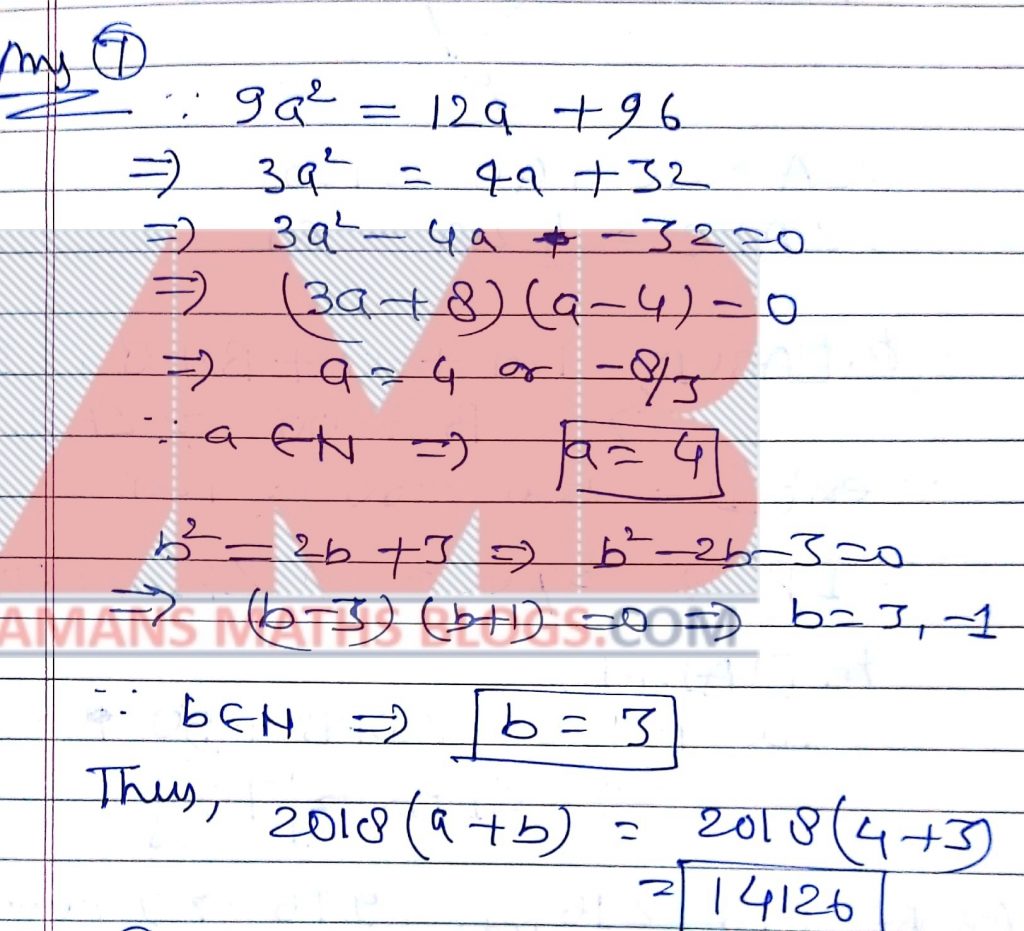 Ans ⑦
∵ 9a² = 12a + 96
⇒ 3a² = 4a + 32
⇒ 3a² - 4a - 32 = 0
⇒ (3a + 8) (a - 4) = 0
⇒ a = 4 or -8/3
∵ a ∈ N ⇒ a = 4
b² = 2b + 3 ⇒ b² - 2b - 3 = 0
⇒ (b - 3) (b + 1) = 0 ⇒ b = 3, -1
AMANS MATHS BLOGS.COM
∵ b ∈ N ⇒ b = 3
Thus,
2018 (a + b) = 2018 (4 + 3)
= 14126